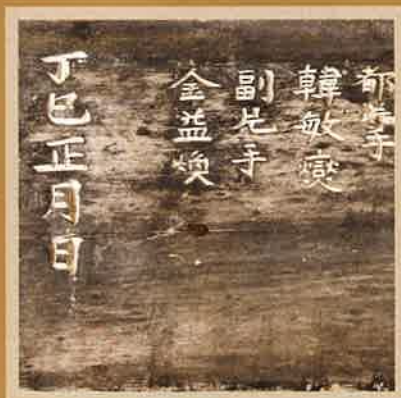 都片手
韓敏燮
副片手
金益煥
丁巳正月日